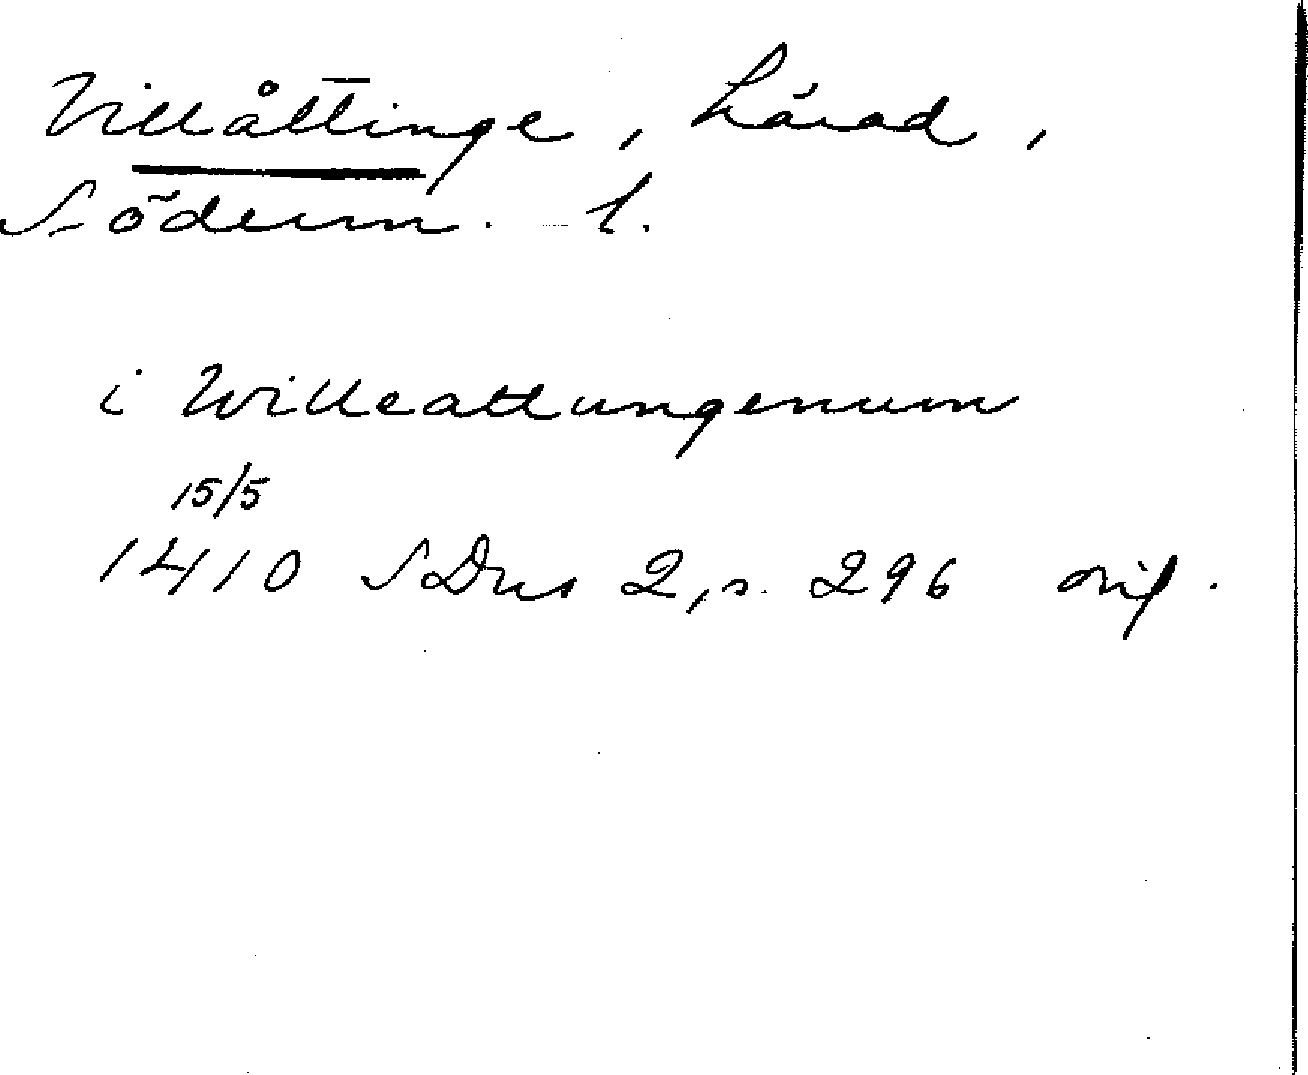 Villåttinge, härad,
Söderm. l.
i Willeattungenum
15/5
1410 SDns 2, s. 296 orig.